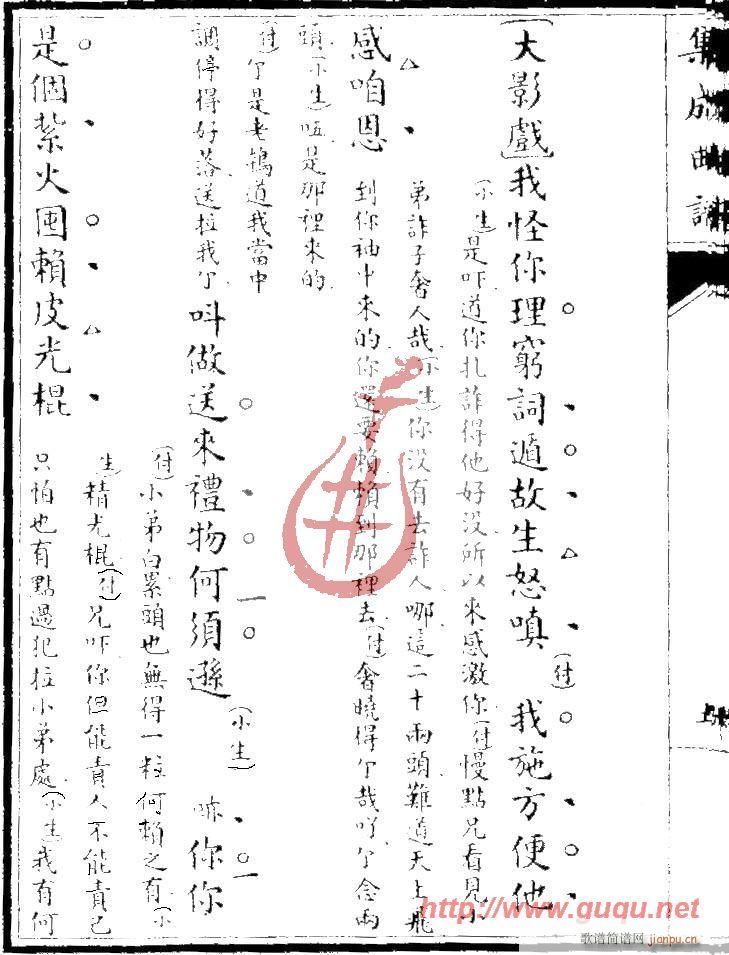 集成曲譜
(大影戲)我怪你理窮詞遁故生怒嗔(付)我施方便他
(小生)是吓道你扎詐得他好没所以來感激你(付)慢點兄看見小
弟詐子奢人哉(小生)你没有去詐人哪這二十兩頭難道天上飛
感咱恩到你袖中来的你還要賴賴到那裡去(付)奢曉得个哉吖个念兩
頭(小生)唔是那裡來的
(付)个是老鴇道我當中
調停得好落送拉我个叫做送來禮物何須遜(小生)嘛你你
(付)小弟白累頭也無得一粒何賴之有(小
生)精光棍(付)兄吓你但能責人不能責己
是個紮火囤賴皮光棍只怕也有點過犯拉小弟處(小生)我有何
http://www.guqu.net
歌谱简谱网 jianpu.cn